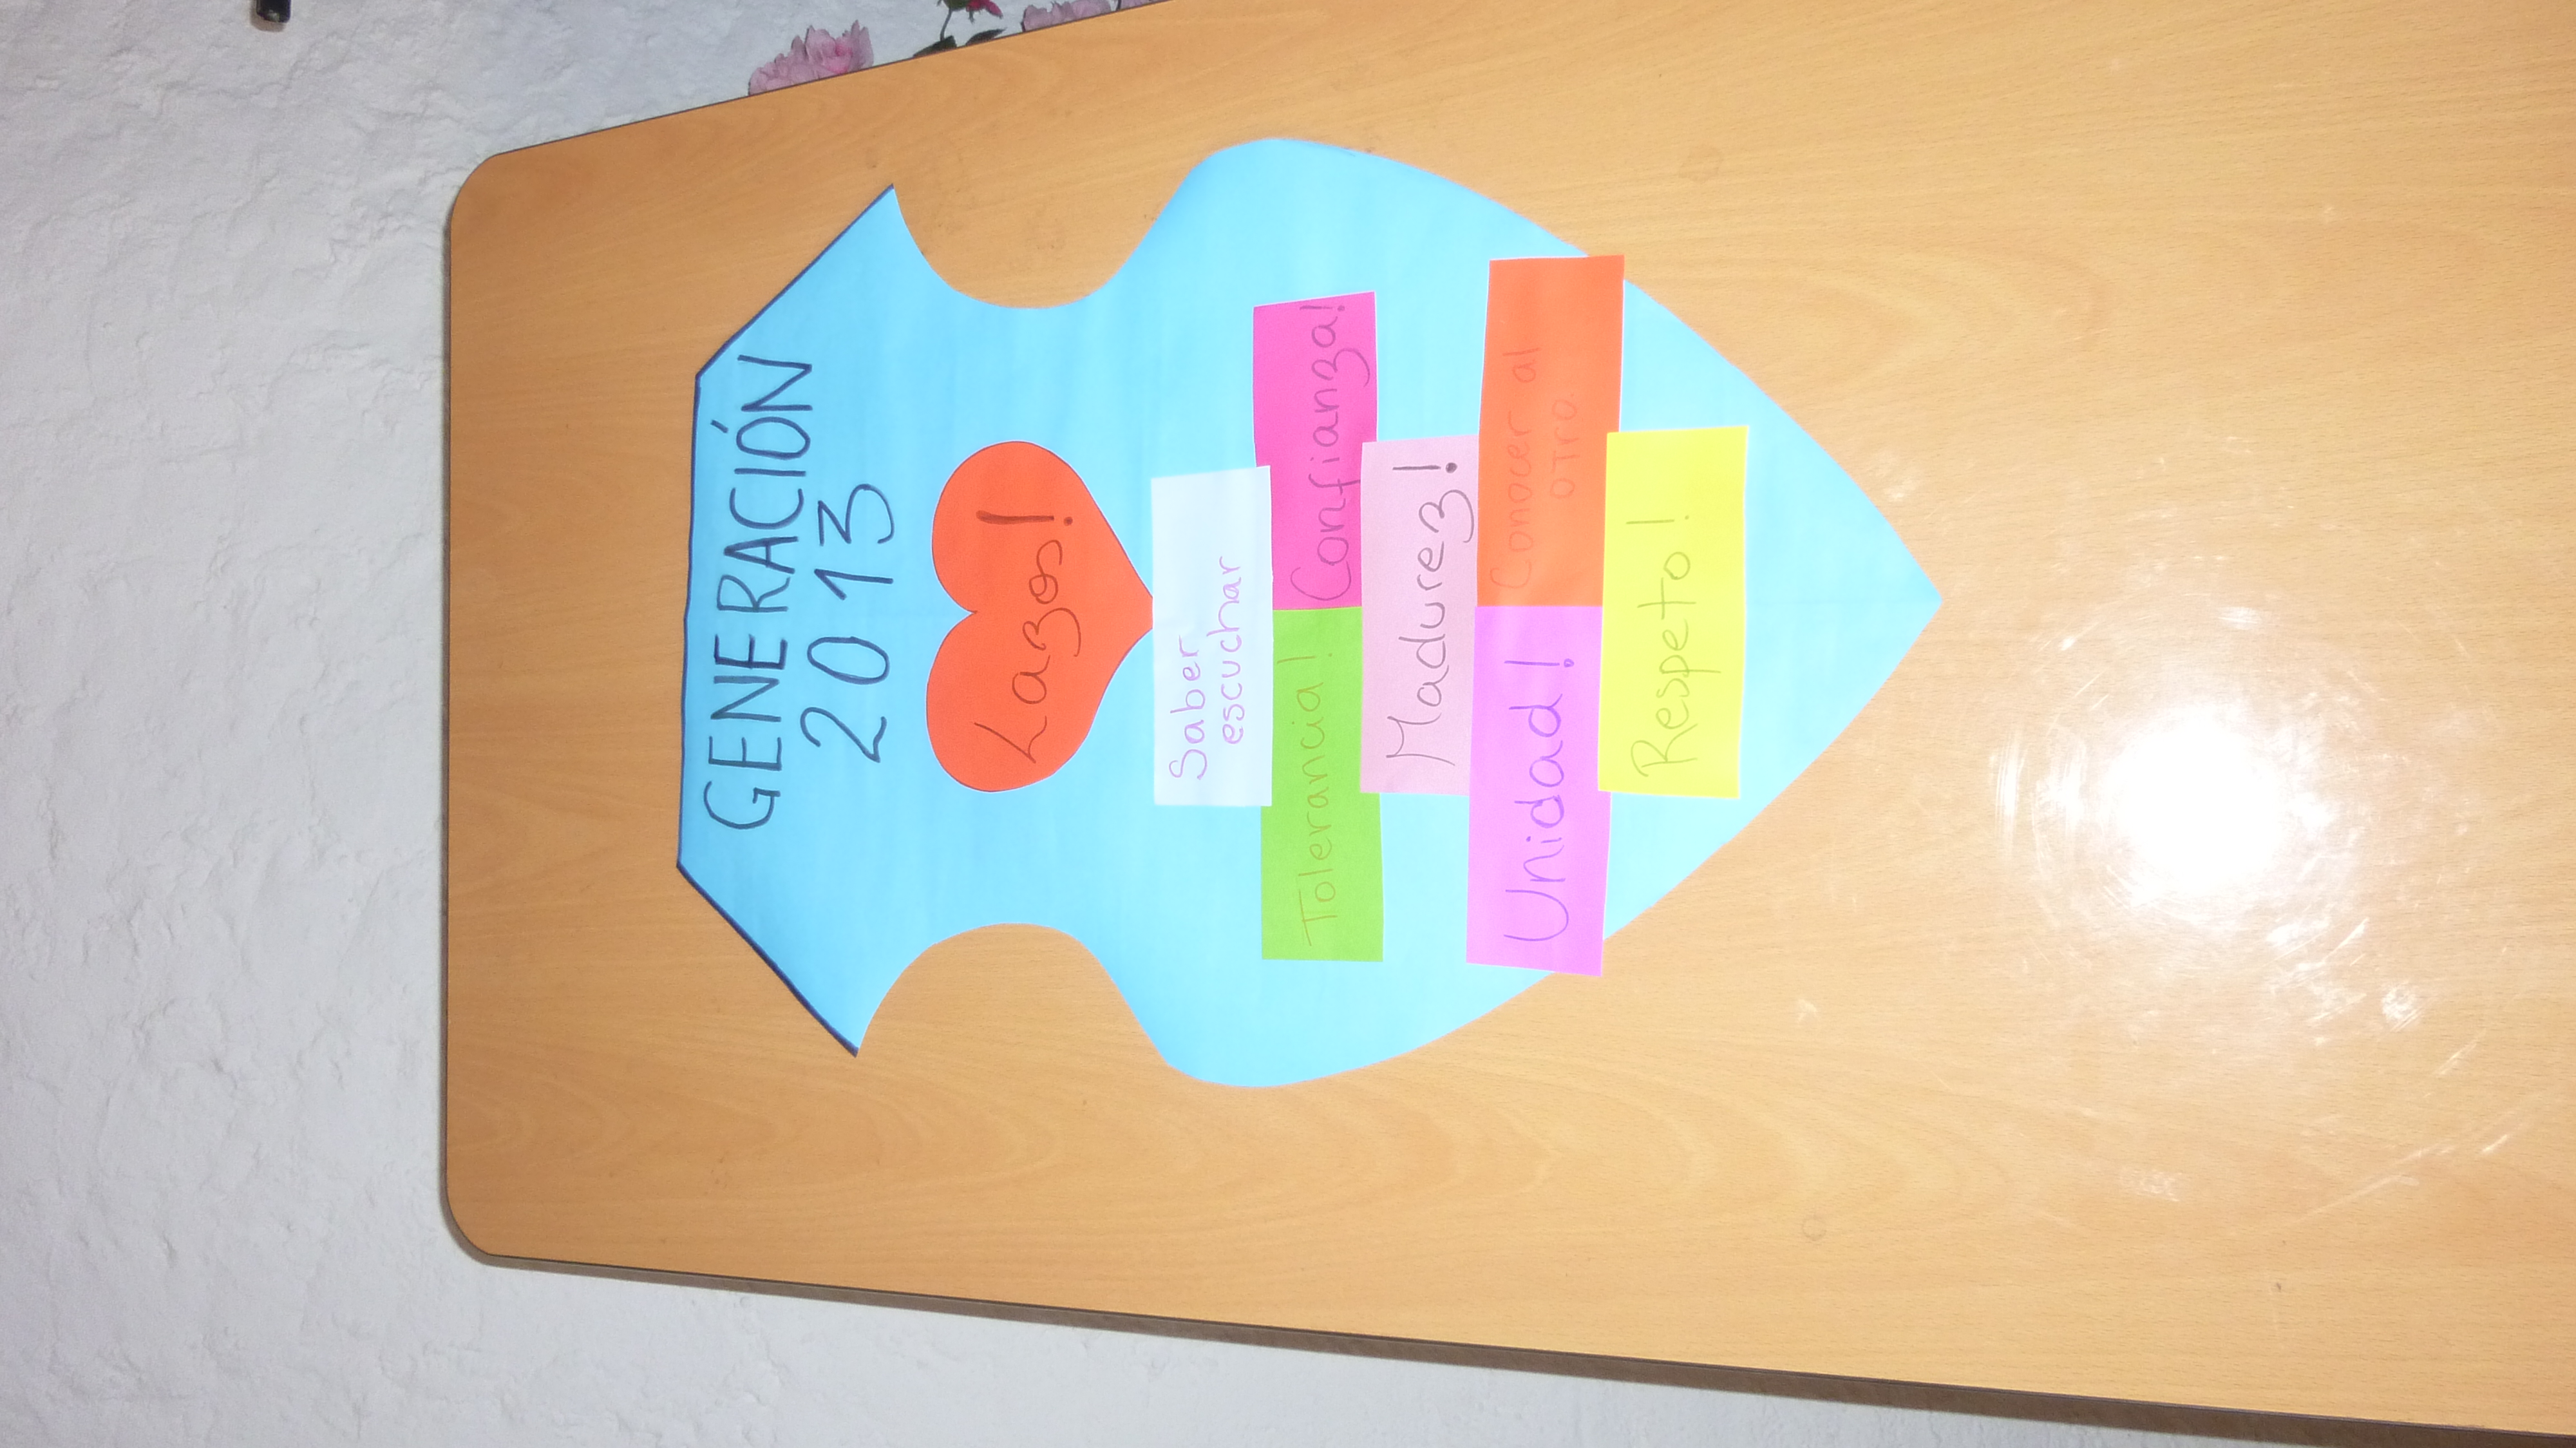 GENERACIÓN
2013
Lazos!
Saber
escuchar
Tolerancia!
Confianza!
Madurez!
Unidad!
Conocer al
otro.
Respeto!